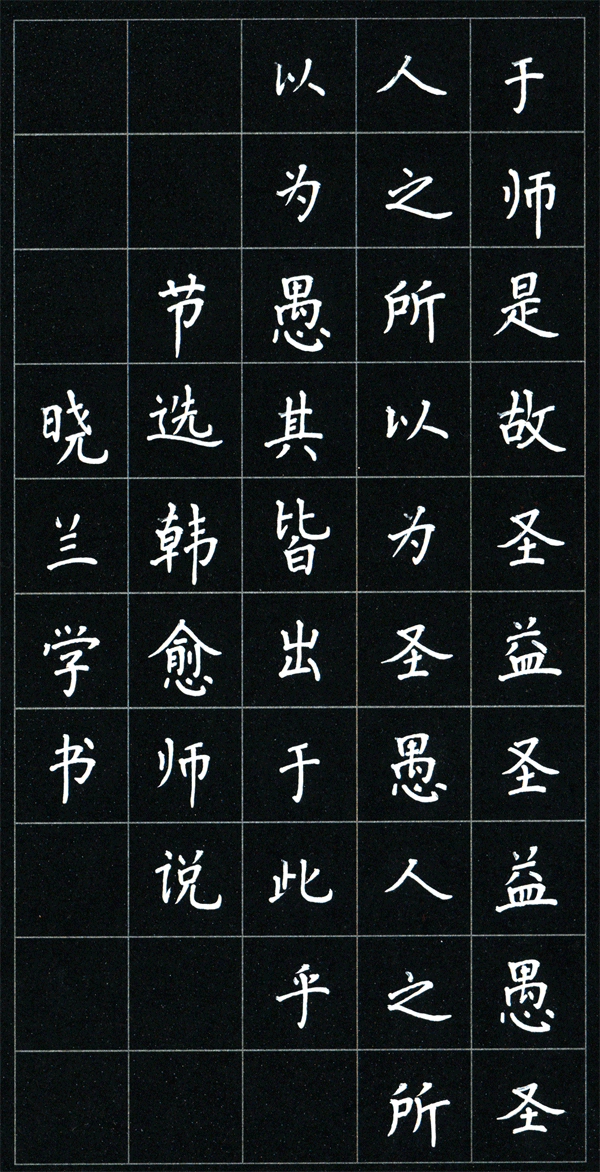 于师是故圣益圣益愚圣
人之所以为圣愚人之所
以为愚其皆出于此乎
节选韩愈师说
晓兰学书